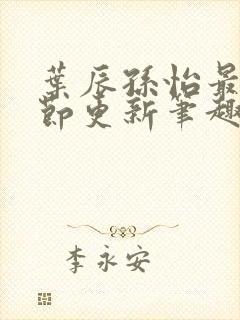 葉辰孫怡最
節更新筆趣
李永安